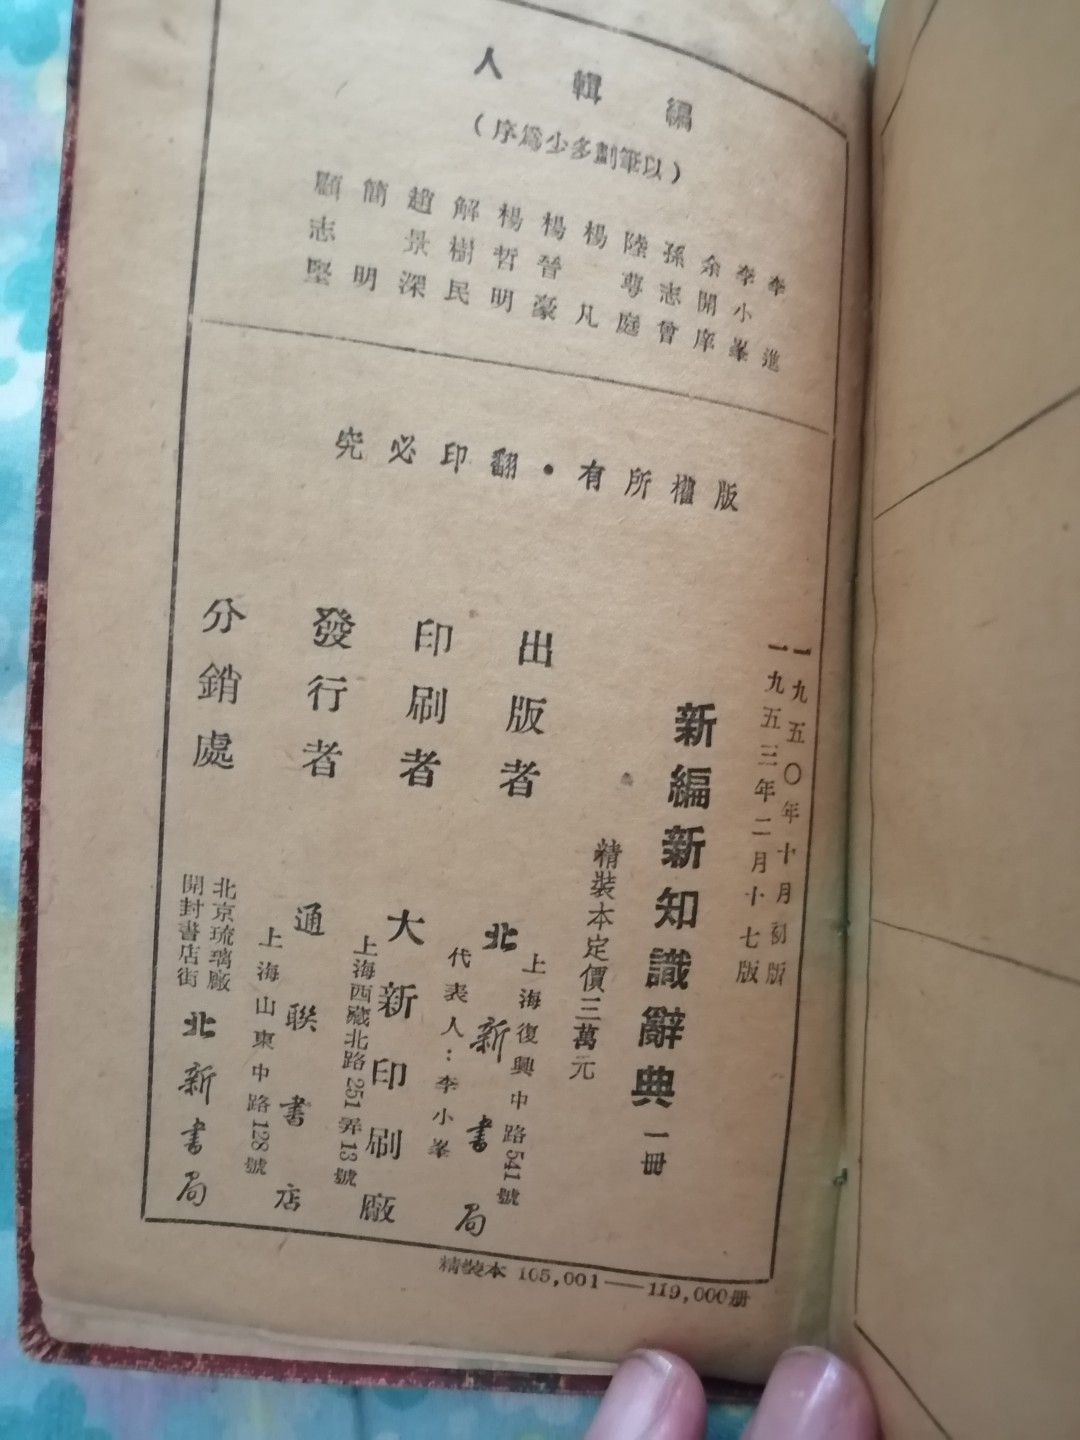 編輯人
（以筆劃多少爲序）
李進
李小峯
余開庠
孫志曾
陸尊庭
楊凡
楊晉豪
楊哲明
解樹民
趙景深
簡明
顧志堅
版權所有·翻印必究
一九五〇年十月初版
一九五三年二月十七版
新編新知識辭典 一冊
精裝本定價三萬元
出版者 北新書局
上海復興中路541號
代表人：李小峯
印刷者 大新印刷廠
上海西藏北路251弄13號
發行者 通聯書店
上海山東中路128號
分銷處 北新書局
北京琉璃廠
開封書店街
精裝本 105,001——119,000册